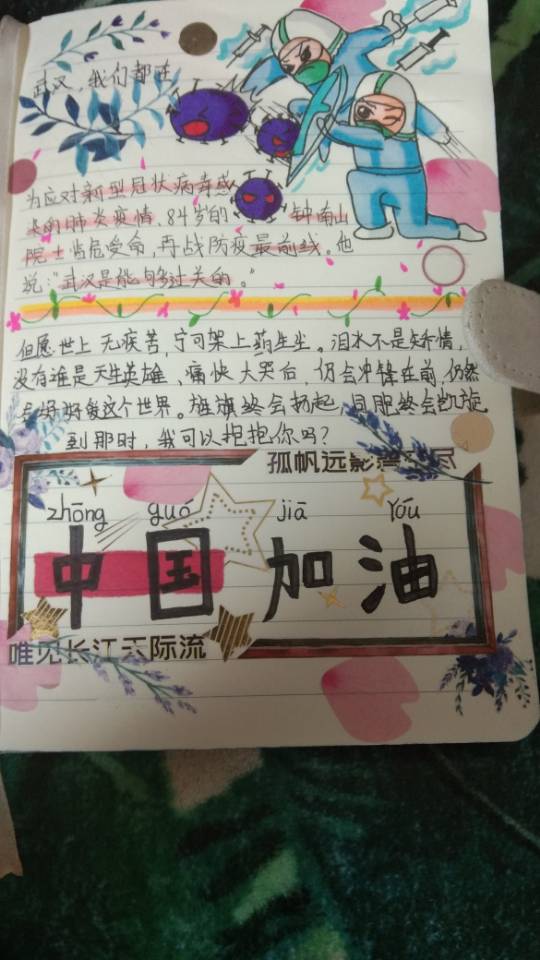 武汉，我们都在
为应对新型冠状病毒感
染的肺炎疫情、84岁的钟南山
院士临危受命，再战防疫最前线。他
说：“武汉是能够过关的。”
但愿世上无疾苦，宁可架上药生尘。泪水不是矫情，
没有谁是天生英雄、痛快大哭后，仍会冲锋在前，仍然
会好好爱这个世界。旌旗终会扬起，同胞终会凯旋
到那时，我可以抱抱你吗？
孤帆远影碧空尽
zhōng guó jiā yóu
中国加油
唯见长江天际流